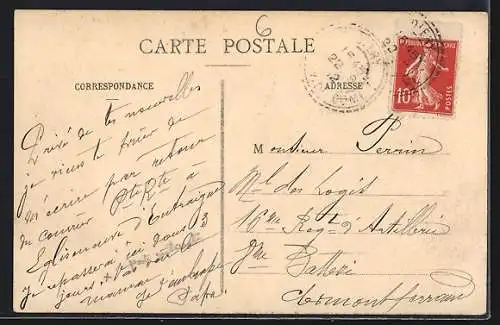 6
CARTE POSTALE
CORRESPONDANCE
ADRESSE
10
POSTES
Privé de tes nouvelles
je viens te prier de
m'écrire par retour
du courrier Pte Rte à
Egliseneuve d'Entraigues
Je repasserai ici dans 3
jours.
maman
Je t'embrasse
Papa
Monsieur Perrin
Mal des Logis
16me Regt d'Artillerie
Batterie
Clermont ferrand